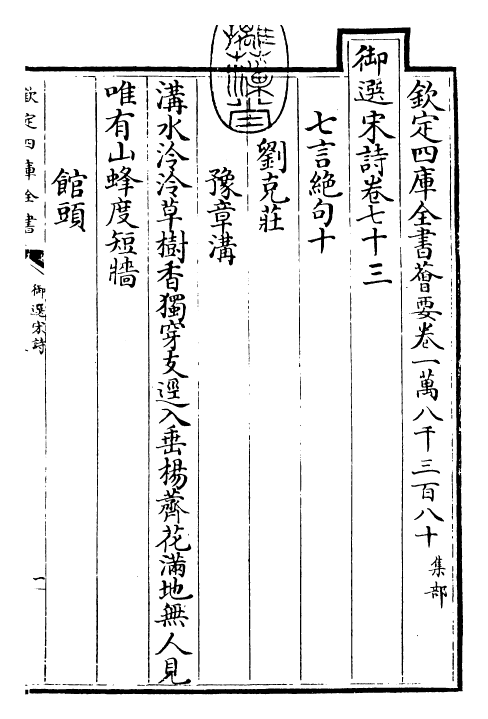 欽定四庫全書薈要卷一萬八千三百八十 集部
御選宋詩卷七十三
七言絶句十
劉克莊
豫章溝
溝水泠泠草樹香獨穿支逕入垂楊薺花滿地無人見
唯有山蜂度短牆
館頭
欽定四庫全書
御選宋詩
一